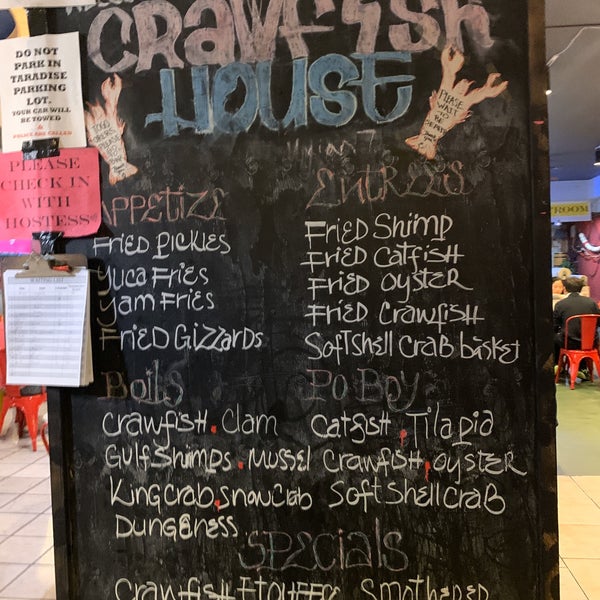 CRAWFISH
HOUSE
DO NOT
PARK IN
TARADISE
PARKING
LOT.
YOUR CAR WILL
BE TOWED
&
POLICE ARE CALLED
PLEASE
CHECK IN
WITH
HOSTESS
WAITING LIST
PLEASE
WAIT
TO BE
APPETIZE
FRIED PICKLES
YUCA FRIES
YAM FRIES
FRIED GIZZARDS
ENTREES
FRIED SHIMP
FRIED CATFISH
FRIED OYSTER
FRIED CRAWFISH
SOFTSHELL CRAB BASKET
BOILS
CRAWFISH. CLAM
GULF SHIMPS. MUSSEL
KING CRAB. SNOW CRAB
DUNGENESS
PO BOY
CATFISH. TILAPIA
CRAWFISH. OYSTER
SOFT SHELL CRAB
SPECIALS
CRAWFISH ETOUFFEE SMOTHERED
TROOM